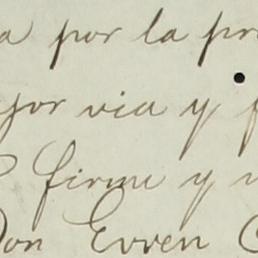 a por la pr
jor via y f
firme y
Don Evren C